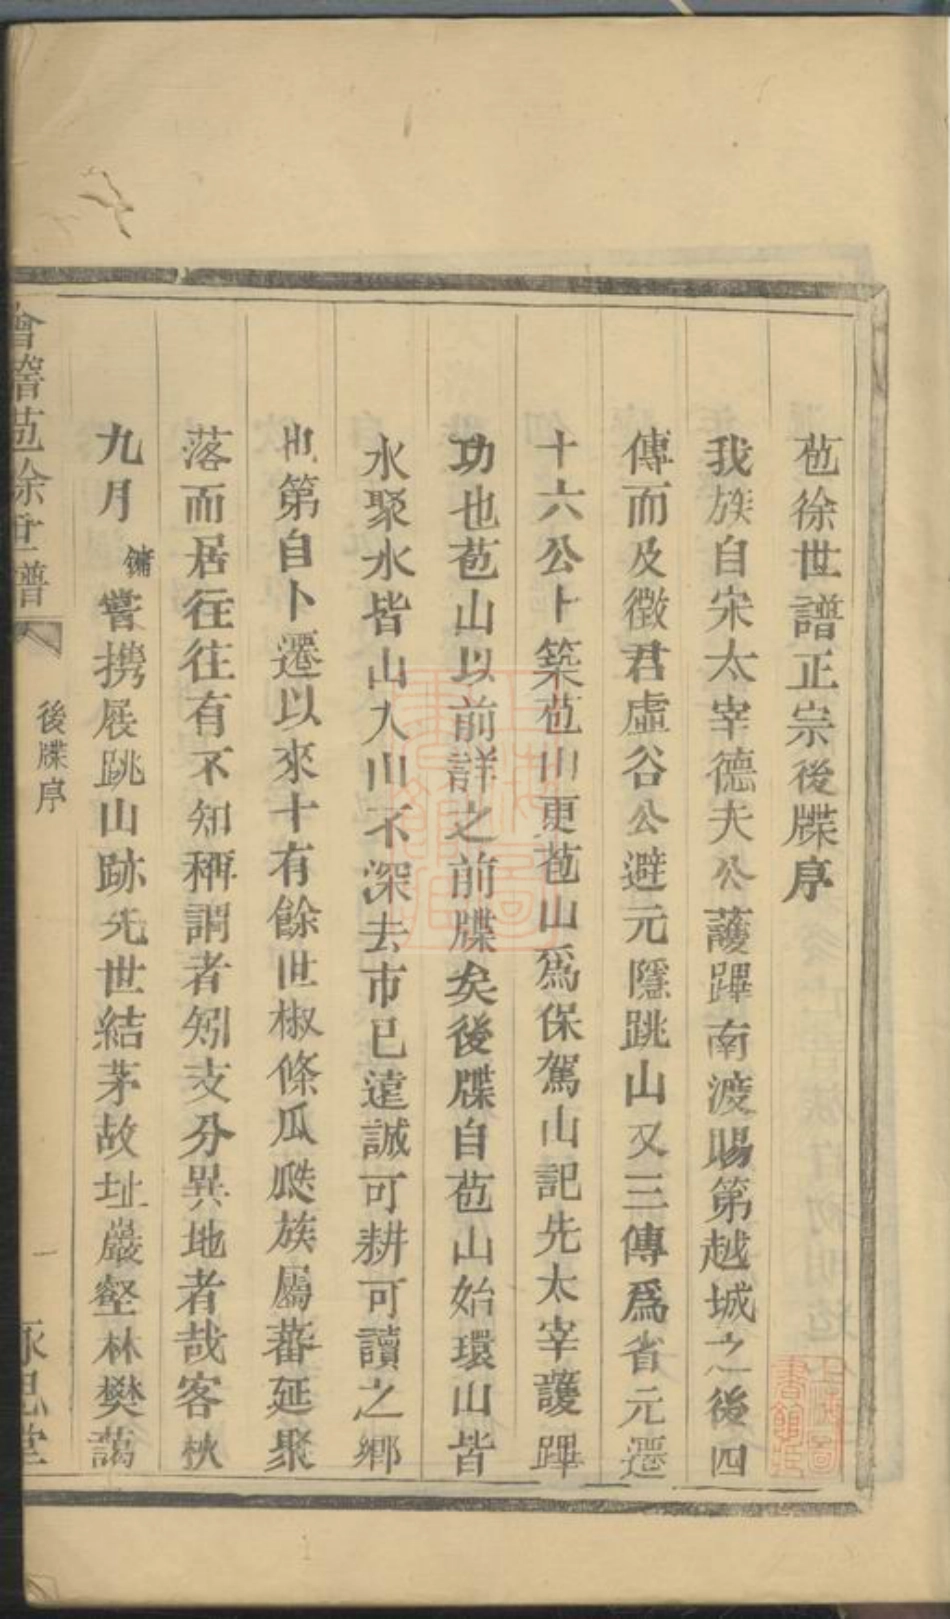 苞徐世譜正宗後牒序
我族自宋太宰德夫公護蹕南渡賜第越城之後四
傳而及徵君虛谷公避元隱跳山又三傳爲省元遷
十六公卜築苞山更苞山爲保駕山記先太宰護蹕
功也苞山以前詳之前牒矣後牒自苞山始環山皆
水聚水皆山入山不深去市已遠誠可耕可讀之鄉
也第自卜遷以來十有餘世椒條瓜瓞族屬蕃延聚
落而居往往有不知稱謂者矧支分異地者哉客秋
九月鏞嘗攜屐跳山跡先世結茅故址巖壑林樊藹
會稽苞徐世譜
後牒序
一
永思堂